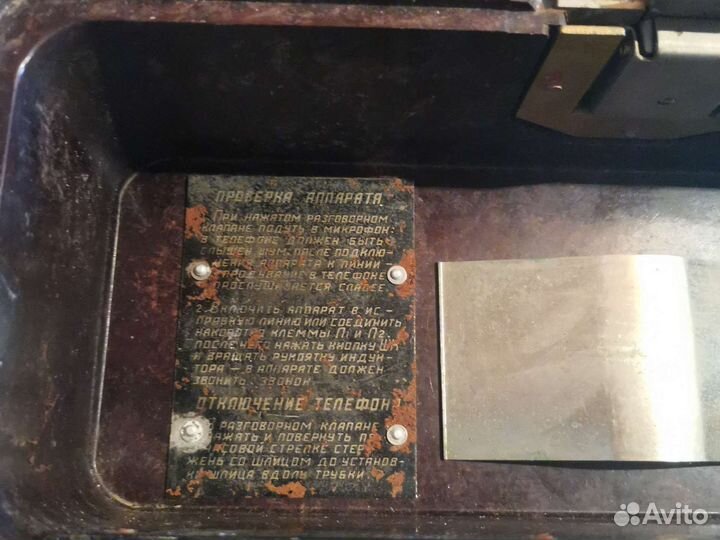 ПРОВЕРКА АППАРАТА
ПРИ НАЖАТОМ РАЗГОВОРНОМ
КЛАПАНЕ ПОДУТЬ В МИКРОФОН:
В ТЕЛЕФОНЕ ДОЛЖЕН БЫТЬ
СЛЫШЕН ШУМ. ПОСЛЕ ПОДКЛЮ-
ЧЕНИЯ АППАРАТА К ЛИНИИ -
ПРОДУВАНИЕ В ТЕЛЕФОНЕ
ПРОСЛУШИВАЕТСЯ СЛАБЕЕ.
2. ВКЛЮЧИТЬ АППАРАТ В ИС-
ПРАВНУЮ ЛИНИЮ ИЛИ СОЕДИНИТЬ
НАКОРОТКО КЛЕММЫ Л1 И Л2,
ПОСЛЕ ЧЕГО НАЖАТЬ КНОПКУ
И ВРАЩАТЬ РУКОЯТКУ ИНДУК-
ТОРА – В АППАРАТЕ ДОЛЖЕН
ЗВОНИТЬ ЗВОНОК
ОТКЛЮЧЕНИЕ ТЕЛЕФОН
В РАЗГОВОРНОМ КЛАПАНЕ
НАЖАТЬ И ПОВЕРНУТЬ ПО
ЧАСОВОЙ СТРЕЛКЕ СТЕР
ЖЕНЬ СО ШЛИЦОМ ДО УСТАНОВ-
КИ ШЛИЦА ВДОЛЬ ТРУБКИ.
Avito